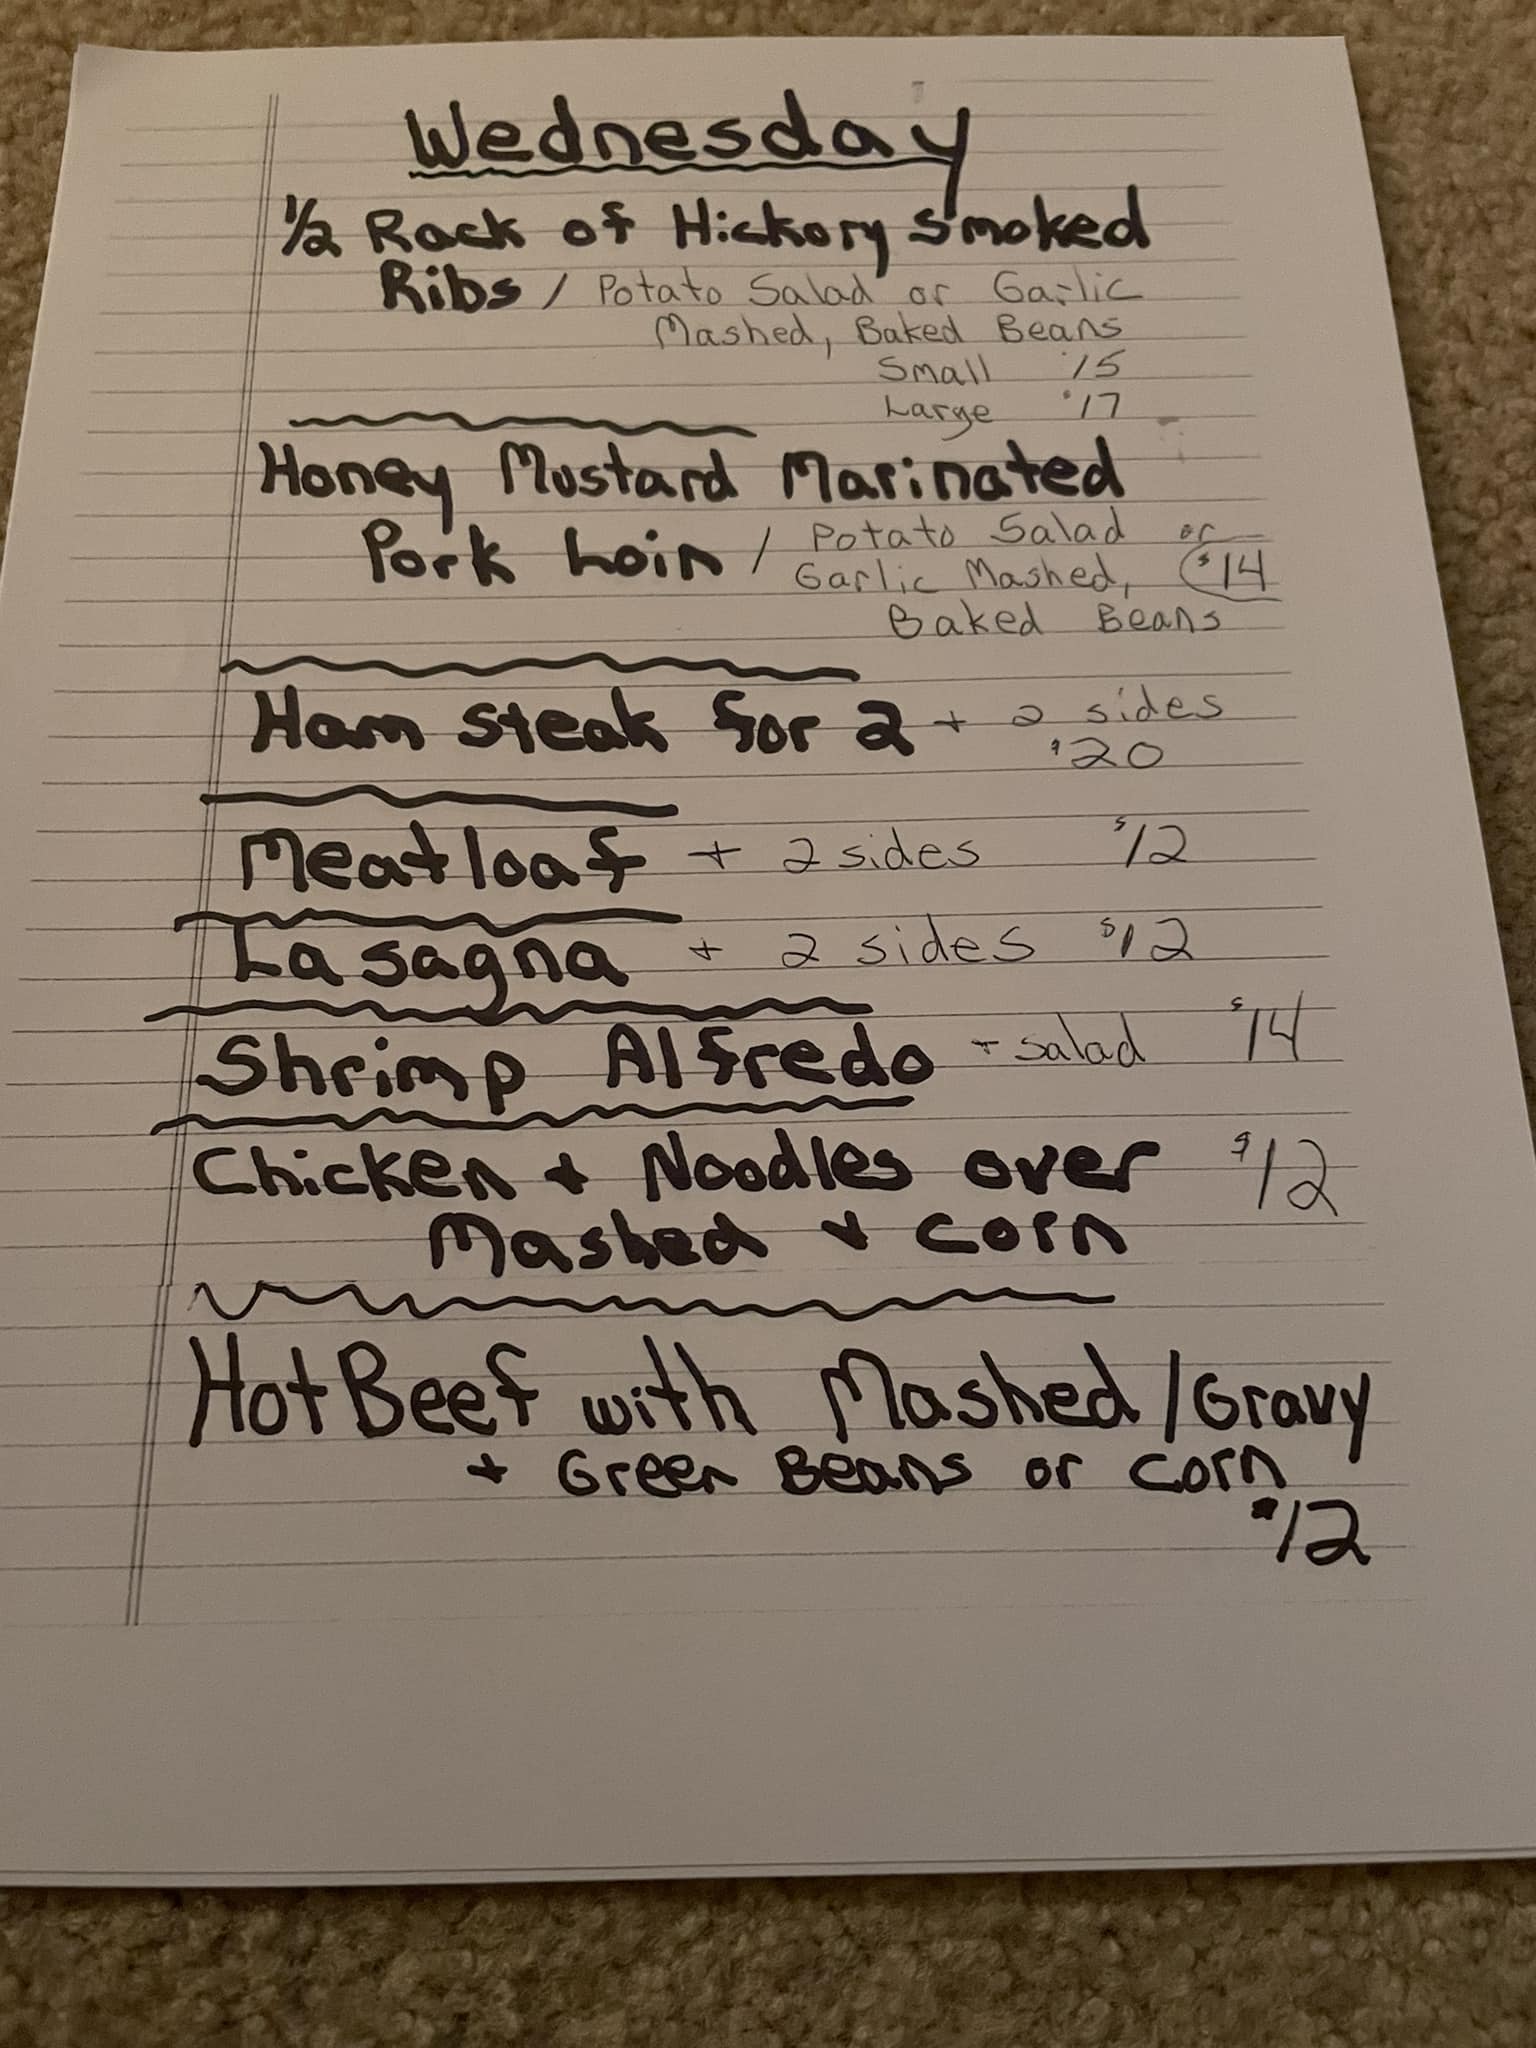 Wednesday
1/2 Rack of Hickory Smoked
Ribs / Potato Salad or Garlic
Mashed, Baked Beans
Small $15
Large $17
Honey Mustard Marinated
Pork Loin / Potato Salad or
Garlic Mashed, $14
Baked Beans
Ham Steak for 2 + 2 sides
$20
Meatloaf + 2 sides $12
Lasagna + 2 sides $12
Shrimp Alfredo + salad $14
Chicken + Noodles over $12
Mashed + Corn
Hot Beef with Mashed / Gravy
+ Green Beans or Corn
$12